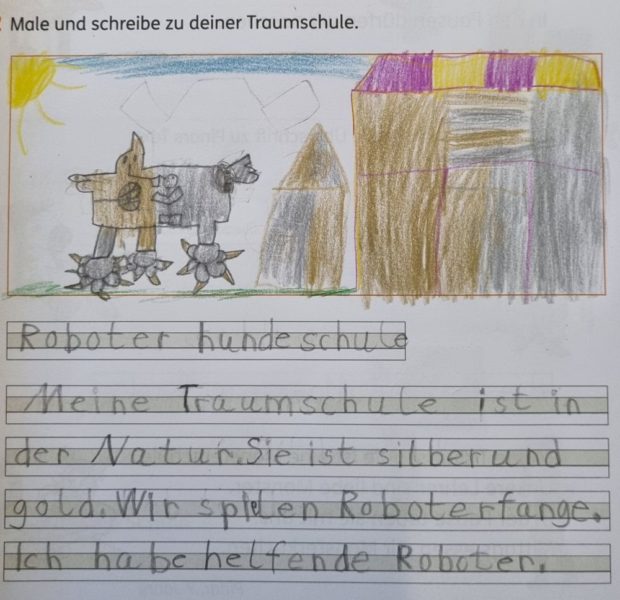 Male und schreibe zu deiner Traumschule.
Roboter hundeschule
Meine Traumschule ist in
der Natur. Sie ist silber und
gold. Wir spielen Roboterfange.
Ich habe helfende Roboter.